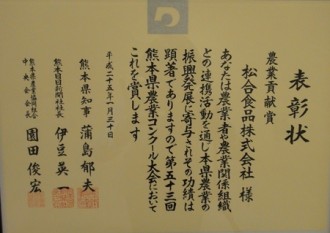 表彰状
農業貢献賞
松合食品株式会社 様
あなたは農業者の農業関係組織
との連携活動を通し本県農業の
振興発展に寄与されその功績は
顕著でありますので第五十三回
熊本県農業コンクール大会において
これを賞します
平成二十五年一月三十日
熊本県知事 蒲島郁夫
熊本日日新聞社社長 伊豆英一
熊本県農業協同組合中央会会長 園田俊宏